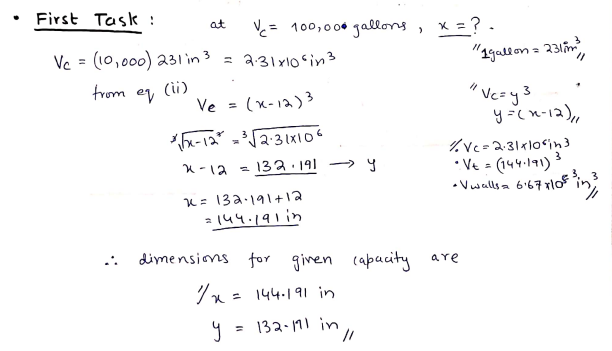 • First Task : at Vc = 100,000 gallons, x = ? .
"1gallon = 231in³"
Vc = (10,000) 231 in³ = 2.31x10⁶ in³
from eq (ii)
"Vc = y³
y = (x-12)"
Ve = (x-12)³
³√x-12³ = ³√2.31x10⁶
x-12 = 132.191 → y
x = 132.191+12
= 144.191 in
// Vc = 2.31x10⁶in³
• Vt = (144.191)³
• Vwalls = 6.67x10⁵ in³ //
∴ dimensions for given capacity are
// x = 144.191 in
y = 132.191 in //